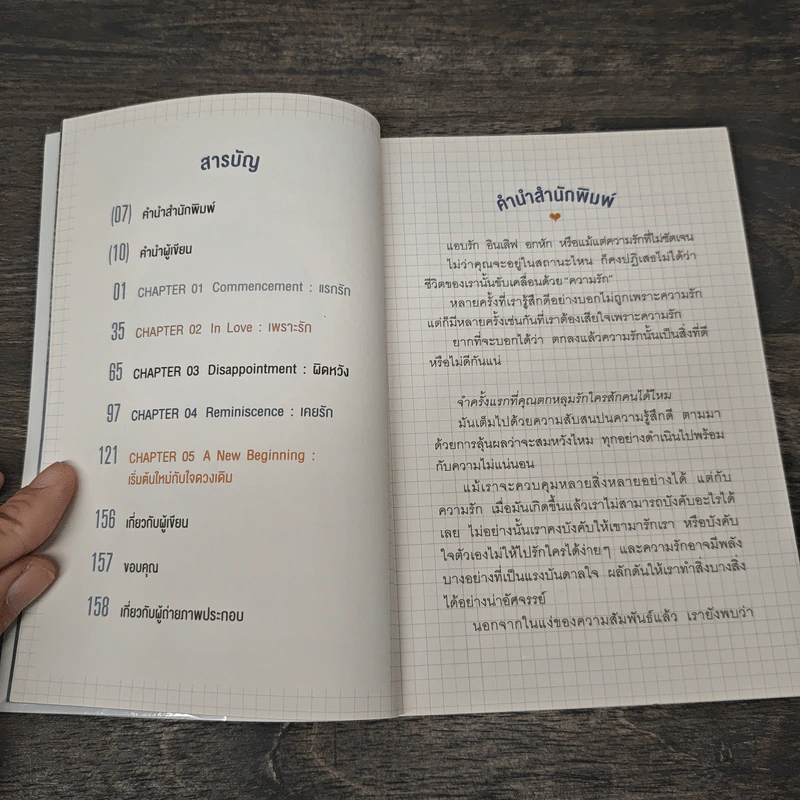 สารบัญ
(07) คำนำสำนักพิมพ์
(10) คำนำผู้เขียน
01 CHAPTER 01 Commencement : แรกรัก
35 CHAPTER 02 In Love : เพราะรัก
65 CHAPTER 03 Disappointment : ผิดหวัง
97 CHAPTER 04 Reminiscence : เคยรัก
121 CHAPTER 05 A New Beginning :
เริ่มต้นใหม่กับใจดวงเดิม
156 เกี่ยวกับผู้เขียน
157 ขอบคุณ
158 เกี่ยวกับผู้ถ่ายภาพประกอบ
คำนำสำนักพิมพ์
แอบรัก อินเลิฟ อกหัก หรือแม้แต่ความรักที่ไม่ชัดเจน
ไม่ว่าคุณจะอยู่ในสถานะไหน ก็คงปฏิเสธไม่ได้ว่า
ชีวิตของเรานั้นขับเคลื่อนด้วย "ความรัก"
หลายครั้งที่เรารู้สึกดีอย่างบอกไม่ถูกเพราะความรัก
แต่ก็มีหลายครั้งเช่นกันที่เราต้องเสียใจเพราะความรัก
ยากที่จะบอกได้ว่า ตกลงแล้วความรักนั้นเป็นสิ่งที่ดี
หรือไม่ดีกันแน่
จำครั้งแรกที่คุณตกหลุมรักใครสักคนได้ไหม
มันเต็มไปด้วยความสับสนปนความรู้สึกดี ตามมา
ด้วยการลุ้นผลว่าจะสมหวังไหม ทุกอย่างดำเนินไปพร้อม
กับความไม่แน่นอน
แม้เราจะควบคุมหลายสิ่งหลายอย่างได้ แต่กับ
ความรัก เมื่อมันเกิดขึ้นแล้วเราไม่สามารถบังคับอะไรได้
เลย ไม่อย่างนั้นเราคงบังคับให้เขามารักเรา หรือบังคับ
ใจตัวเองไม่ให้ไปรักใครได้ง่ายๆ และความรักอาจมีพลัง
บางอย่างที่เป็นแรงบันดาลใจ ผลักดันให้เราทำสิ่งบางสิ่ง
ได้อย่างน่าอัศจรรย์
นอกจากในแง่ของความสัมพันธ์แล้ว เรายังพบว่า